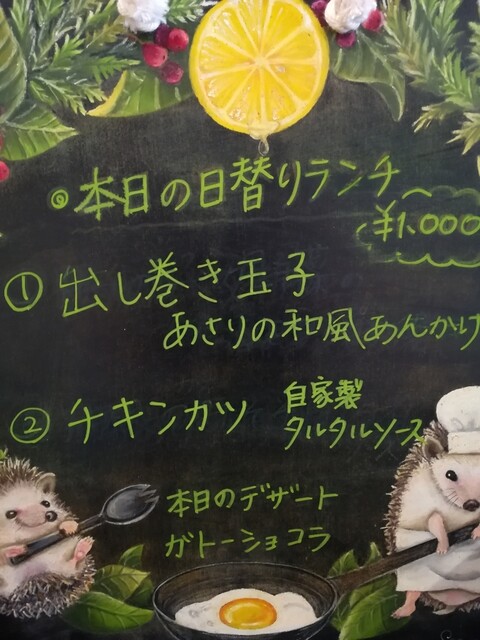 ◎本日の日替りランチ
¥1.000
① 出し巻き玉子
あさりの和風あんかけ
② チキンカツ 自家製
タルタルソース
本日のデザート
ガトーショコラ